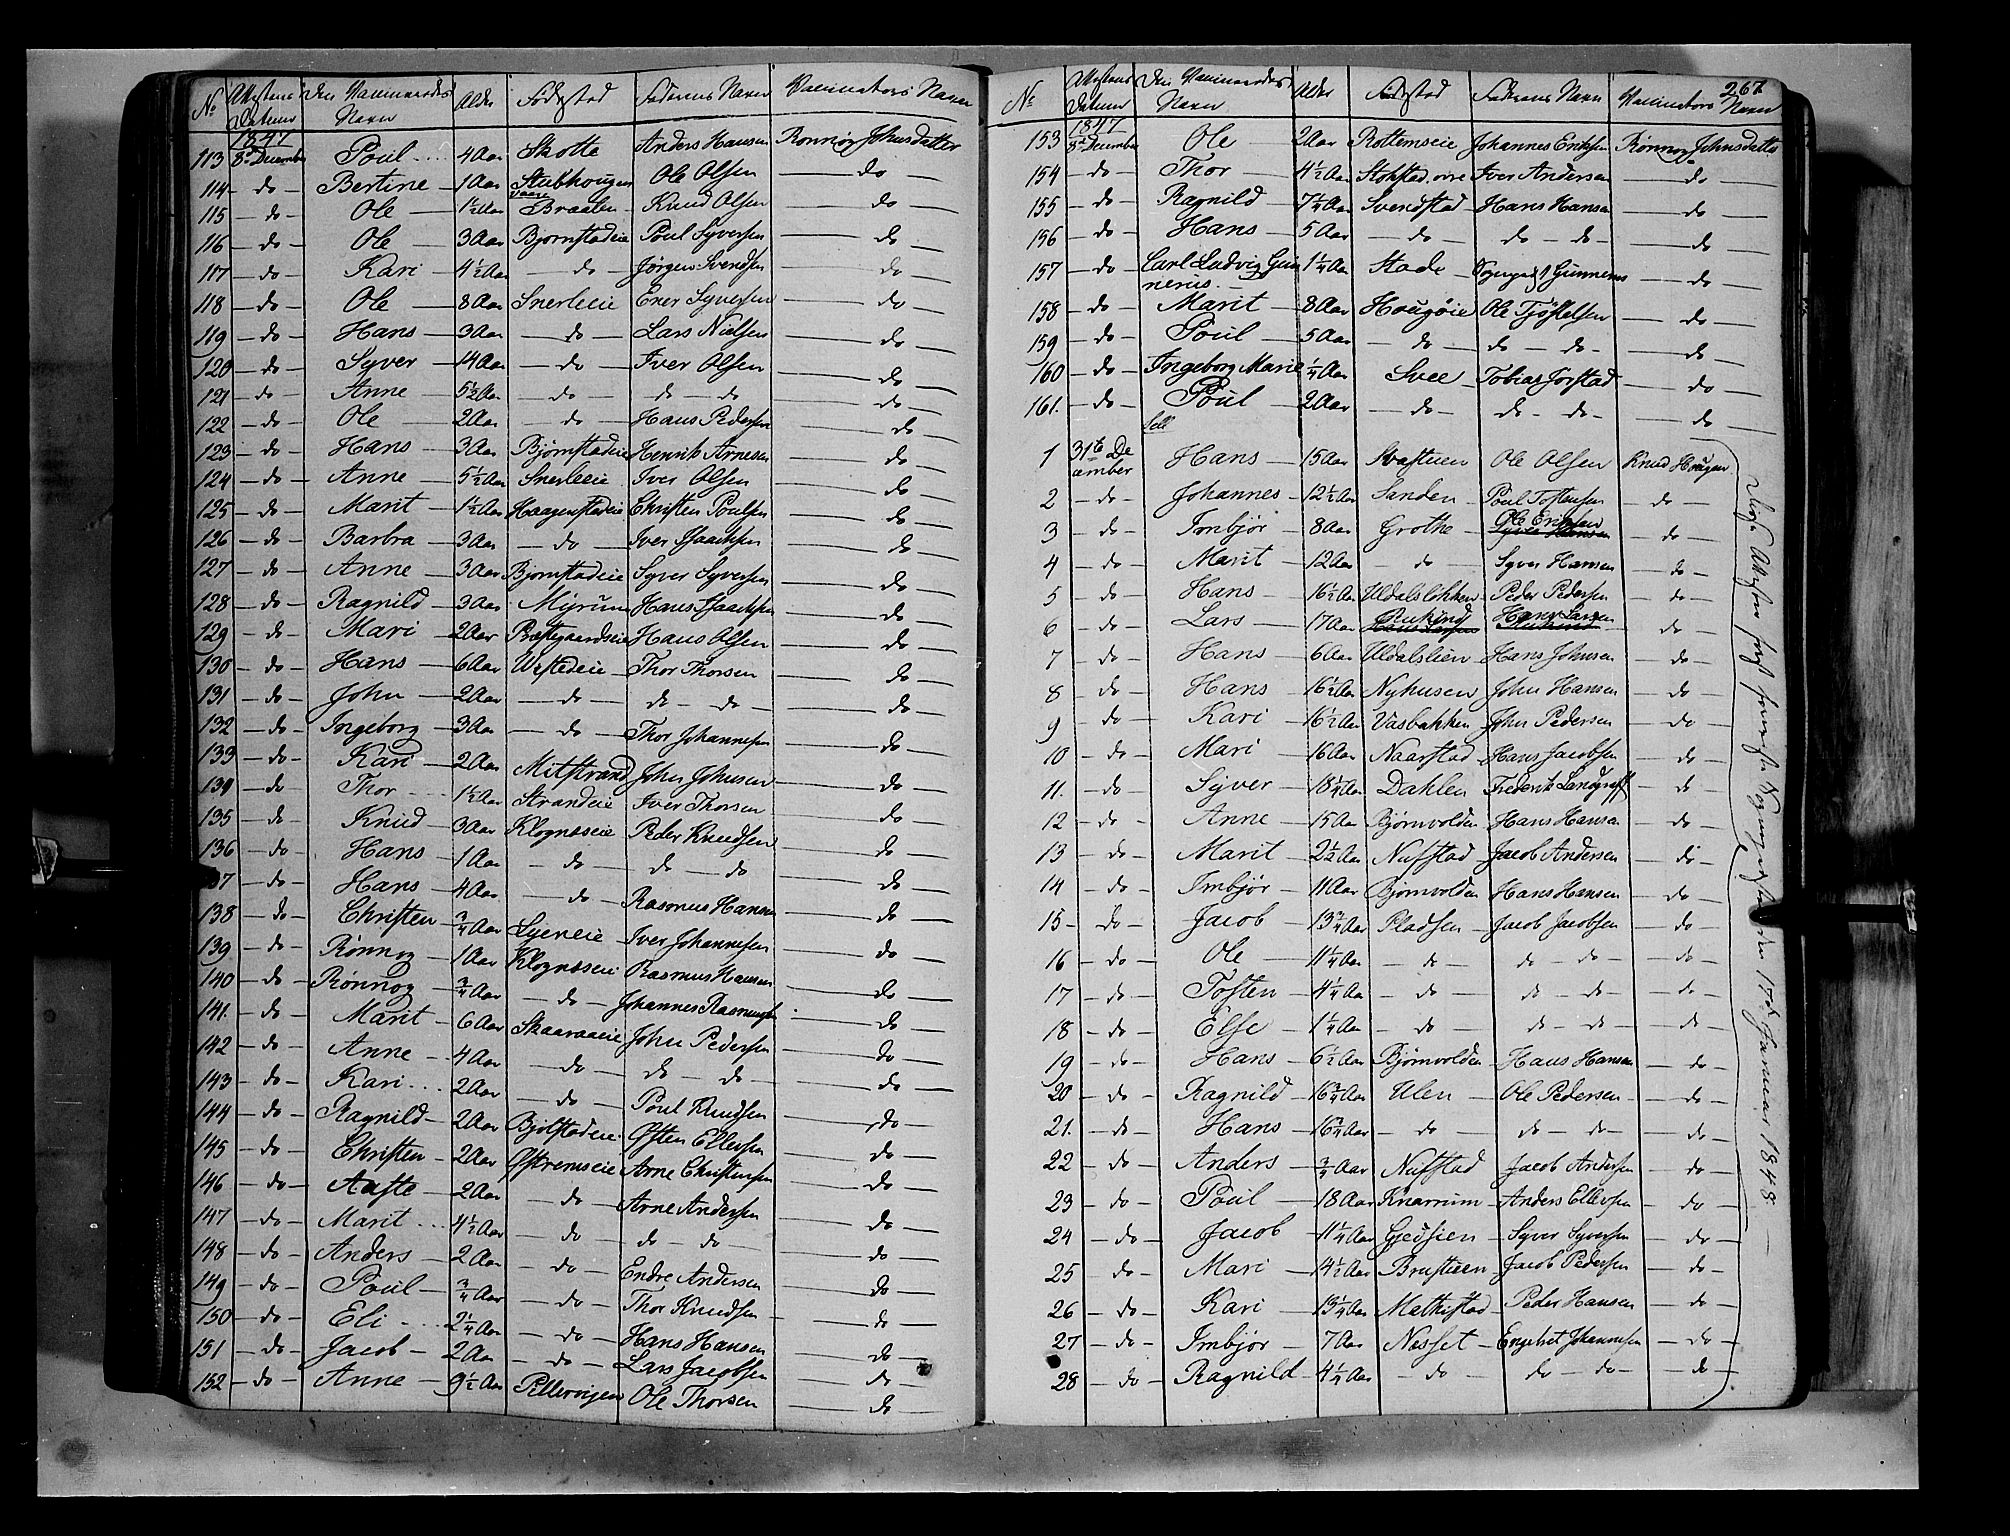 No Attestens Datum Den Vaccineredes Navn Alder Fødested Faderens Navn Vaccinators Navn
1847
113 8de December Poul 4 Aar Skotte Anders Hansen Rønnøy Johnsdatter
114 - do - Bertine 1 Aar Stubhougen Ole Olsen do
115 - do - Ole 1½ Aar Braaten Knud Olsen do
116 - do - Ole 3 Aar Bjornstadeie Poul Syversen do
117 - do - Kari 4½ Aar - do - Jørgen Svendsen do
118 - do - Ole 8 Aar Snerleeie Ener Syversen do
119 - do - Hans 3 Aar - do - Lars Nielsen do
120 - do - Syver 4 Aar - do - Iver Olsen do
121 - do - Anne 5½ Aar - do - do - do do
122 - do - Ole 2 Aar - do Hans Pedersen do
123 - do - Hans 3 Aar Bjørnstadeie Henrik Arnesen do
124 - do - Anne 5½ Aar Snerleeie Iver Olsen do
125 - do - Marit 1½ Aar Haagenstadeie Christen Poulsen do
126 - do - Barbra 3 Aar - do - Iver Isaachsen do
127 - do - Anne 3 Aar Bjornstadeie Syver Syversen do
128 - do - Ragnild 3 Aar Myrum Hans Isaachsen do
129 - do - Mari 2 Aar Præstegaardseie Hans Olsen do
130 - do - Hans 6 Aar Wistedeie Thor Thorsen do
131 - do - John 2 Aar - do - do - do do
132 - do Ingeborg 3 Aar - do Thor Johannesen do
133 - do Kari 2 Aar Mitstrand John Johnsen do
134 - do Thor 1½ Aar Strandeie Iver Thorsen do
135 - do Knud 3 Aar Klognæseie Peder Knudsen do
136 - do Hans 1 Aar - do do - do do
137 - do - Hans 4 Aar - do Rasmus Hansen do
138 - do Christen ¾ Aar Lyeneie Iver Johannesen do
139 - do Rønnog 1 Aar Klognæseie Rasmus Hansen do
140 - do - Rønnog ¾ Aar - do - Johannes Rasmussen do
141. - do Marit 6 Aar Skaaraaeie John Pedersen do
142 - do - Anne 4 Aar - do do - do do
143 - do - Kari 2 Aar - do - Poul Knudsen do
144 - do - Ragnild 2 Aar Bjølstadeie Østen Ellevsen do
145 - do - Christen 2 Aar Øfstremseie Arne Christensen do
146 - do - Aaste 2 Aar - do Arne Andersen do
147 - do - Marit 4½ Aar - do do - do do
148 - do - Anders 2 Aar - do - Endre Andersen do
149 - do - Poul ¾ Aar - do - Thor Knudsen do
150 - do - Eli 2¼ Aar - do - Hans Hansen do
151 - do - Jacob 2 Aar - do - Lars Jacobsen do
152 - do - Anne 9½ Aar Pillarvigen Ole Thorsen do
267
No Attestens Datum Den Vaccineredes Navn Alder Fødested Faderens Navn Vaccinators Navn
1847
153 8de December Ole 2 Aar Rottemseie Johannes Eriksen Rønnog Johnsdatter
154 - do - Thor 4½ Aar Stokstad øvre Iver Andersen do
155 - do - Ragnild 7¼ Aar Svendstad Hans Hansen do
156 - do - Hans 5 Aar do do - do - do
157 - do Carl Ludvig Gunnerus 1¼ Aar Stade Sogneprest Gunnerus do
158 - do - Marit 8 Aar Hougøie Ole Tjøstelsen do
159 - do - Poul 5 Aar - do do - do - do
160 - do - Ingeborg Marie ¼ Aar Svee Tobias Jorstad do
161. - do - Poul 2 Aar - do - do - do - do
Sell
1 31te December Hans 15 Aar Svastuen Ole Olsen Knud Hougen
2 - do - Johannes 12½ Aar Sanden Poul Tostensen do
3 - do - Imbjør 8 Aar Grothe Ole Eriksen do
4 - do - Marit 12 Aar do Syver Hansen do
5 do Hans 16½ Aar Uldalslökken Peder Pedersen do
6 - do - Lars 17 Aar Ruskind Hans Larsen do
7 - do - Hans 6 Aar Uldalslien Hans Johnsen - do -
8 - do - Hans 16½ Aar Nyhusen John Hansen do
9 - do - Kari 16½ Aar Vasbakken John Pedersen do
10 - do - Mari 16 Aar Naarstad Hans Jacobsen do
11. - do - Syver 18¼ Aar Dahlen Frederik Landgraff do
12 - do - Anne 15 Aar Bjørnvolden Hans Hansen do
13 - do - Marit 2½ Aar Nufstad Jacob Andersen do
14 - do - Imbjør 11 Aar Bjørnvolden Hans Hansen do
15 - do Jacob 13¾ Aar Pladsen Jacob Jacobsen do
16 - do - Ole 11¼ Aar - do - do - do - do -
17 - do - Tosten 4¼ Aar - do - do - do - do
18 - do - Else 1¼ Aar - do do - do do
19 - do - Hans 6½ Aar Bjørnvolden Hans Hansen - do -
20 - do - Ragnild 16¾ Aar Ulen Ole Pedersen - do -
21. - do - Hans 16¾ Aar - do - do - do - do -
22 - do - Anders ¾ Aar Nufstad Jacob Andersen - do -
23 - do - Poul 18 Aar Knarrum Anders Ellevsen do
24 - do - Jacob 11¼ Aar Gjedsien Syver Syversen do
25 - do - Mari 14½ Aar Brustuen Jacob Pedersen - do -
26 - do - Kari 13¼ Aar Methistad Peder Hansen - do
27 - do - Imbjør 7 Aar Nesset Engebret Johannesen - do -
28 - do - Ragnild 4¼ Aar - do do - do - do
den 17de Januar 1848.